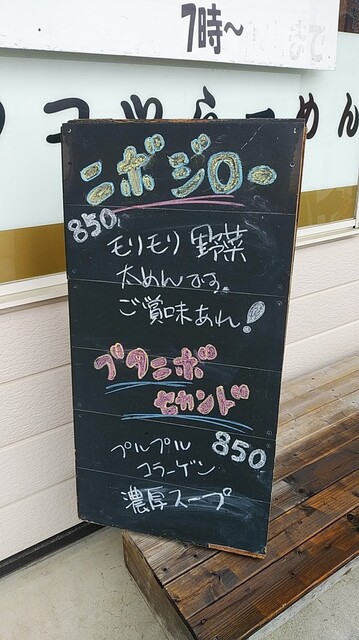 7時〜
らーめん
ニボジロー
850
モリモリ野菜
太めんです。
ご賞味あれ!
ブタニボ
セカンド
850
プルプル
コラーゲン
濃厚スープ